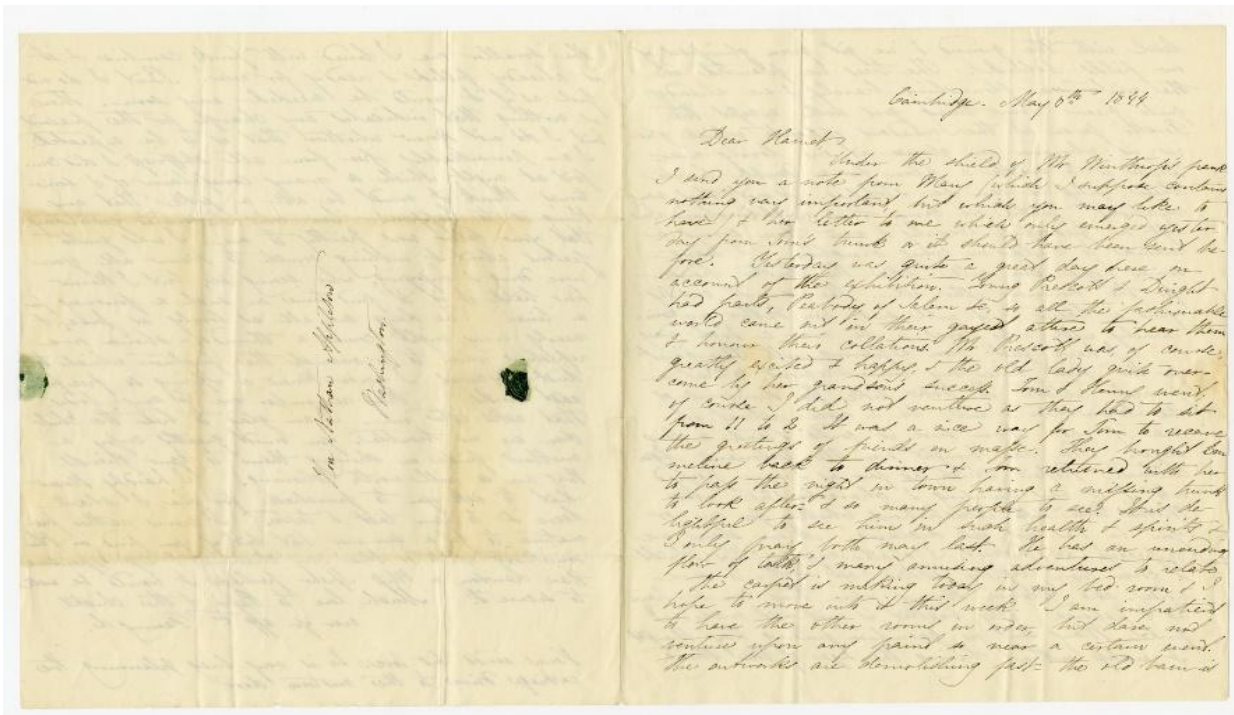 Hon Nathan Appleton
Washington.
Cambridge. May 8th 1844
Dear Harriet,
Under the shield of Mr Winthrop's frank
I send you a note from Mary (which I suppose contains
nothing very important but which you may like to
have) & her letter to me which only emerged yester
day from Tom's trunk or it should have been sent be-
fore. Yesterday was quite a great day here on
account of the exhibition. Young Prescott & Dwight
had parts, Peabody of Salem &c, so all the fashionable
world came out in their gayest attire to hear them
& honour their collations. Mr Prescott was, of course,
greatly excited & happy, & the old lady quite over-
come by her grandson's success. Tom & Henry went,
of course I did not venture as they had to sit
from 11 to 2. It was a nice way for Tom to receive
the greetings of friends en masse. They brought Em
meline back to dinner & Tom returned with her
to pass the night in town having a missing trunk
to look after & so many people to see. It is de
lightful to see him in such health & spirits &
I only pray both may last. He has an unending
flow of talk, & many amusing adventures to relate
The carpet is making today in my bed-room & I
hope to move into it this week. I am impatient
to have the other rooms in order, but dare not
venture upon any paint so near a certain event.
The outworks are demolishing fast – the old barn is